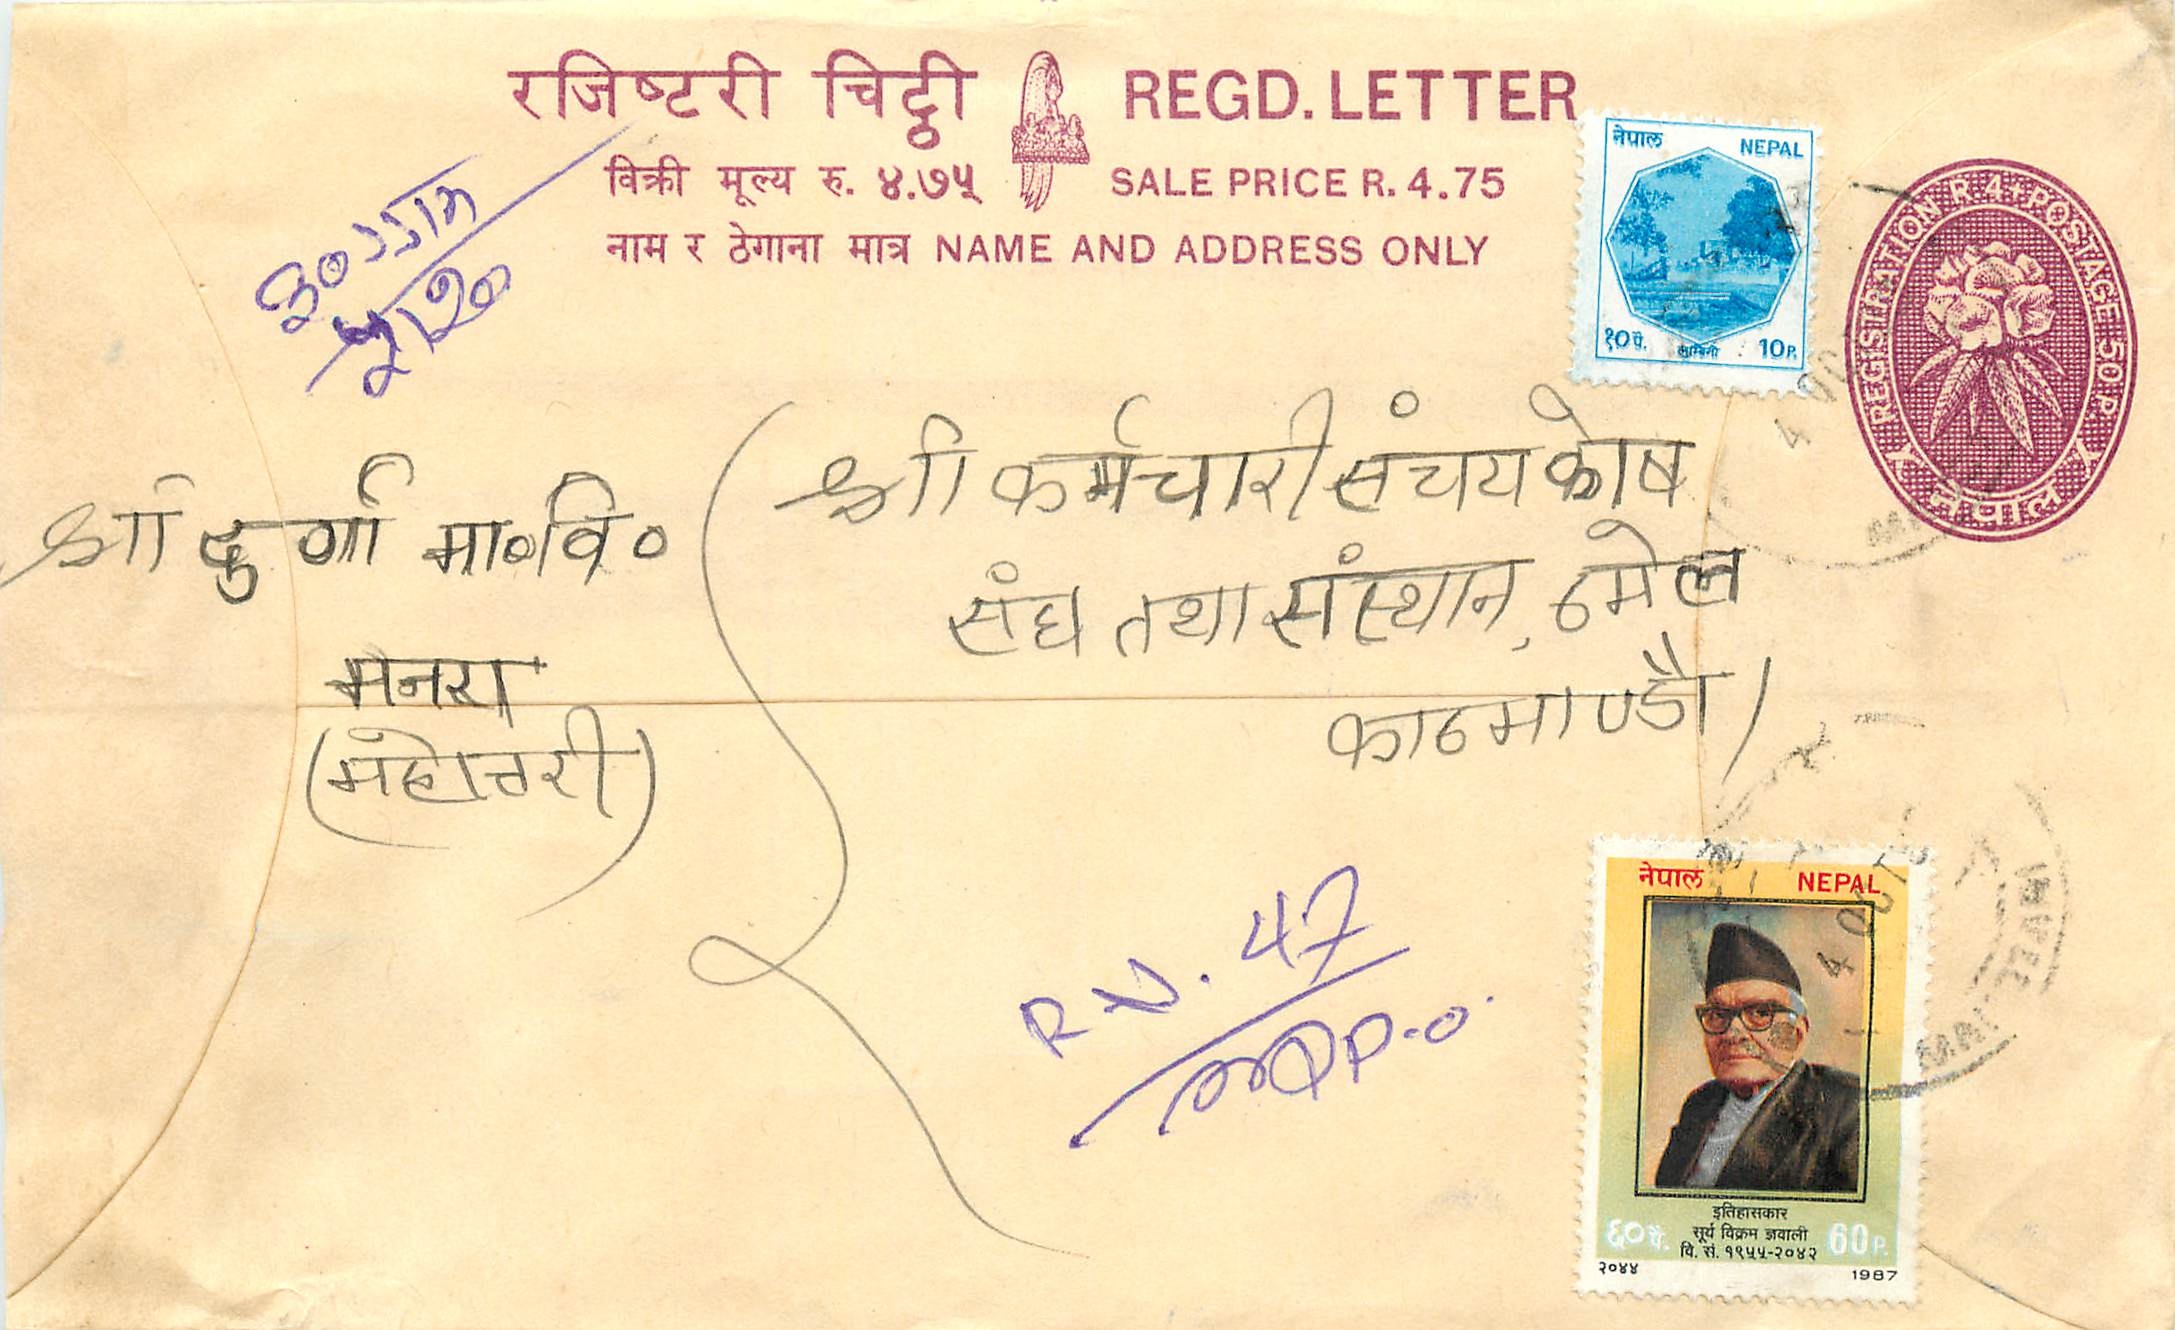 रजिष्टरी चिट्ठी REGD. LETTER
विक्री मूल्य रु. ४.७५ SALE PRICE R. 4.75
नाम र ठेगाना मात्र NAME AND ADDRESS ONLY
नेपाल NEPAL
१०पै. लुम्बिनी 10P.
REGISTRATION R 4+POSTAGE 50 P.
नेपाल
श्री कर्मचारी संचय कोष
संघ तथा संस्थान, ठमेल
काठमाण्डौ।
श्री दुर्गा मा०वि०
मनरा
(महोत्तरी)
R N. 47
P.O.
नेपाल NEPAL
इतिहासकार
सूर्य विक्रम ज्ञवाली
वि. सं. १९५५-२०४२
६०पै. 60P.
२०४४ 1987